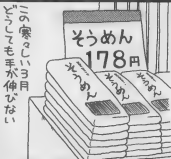 この寒々しい3月
どうしても手が伸びない
そうめん
178円
そうめん
そうめん
そうめん